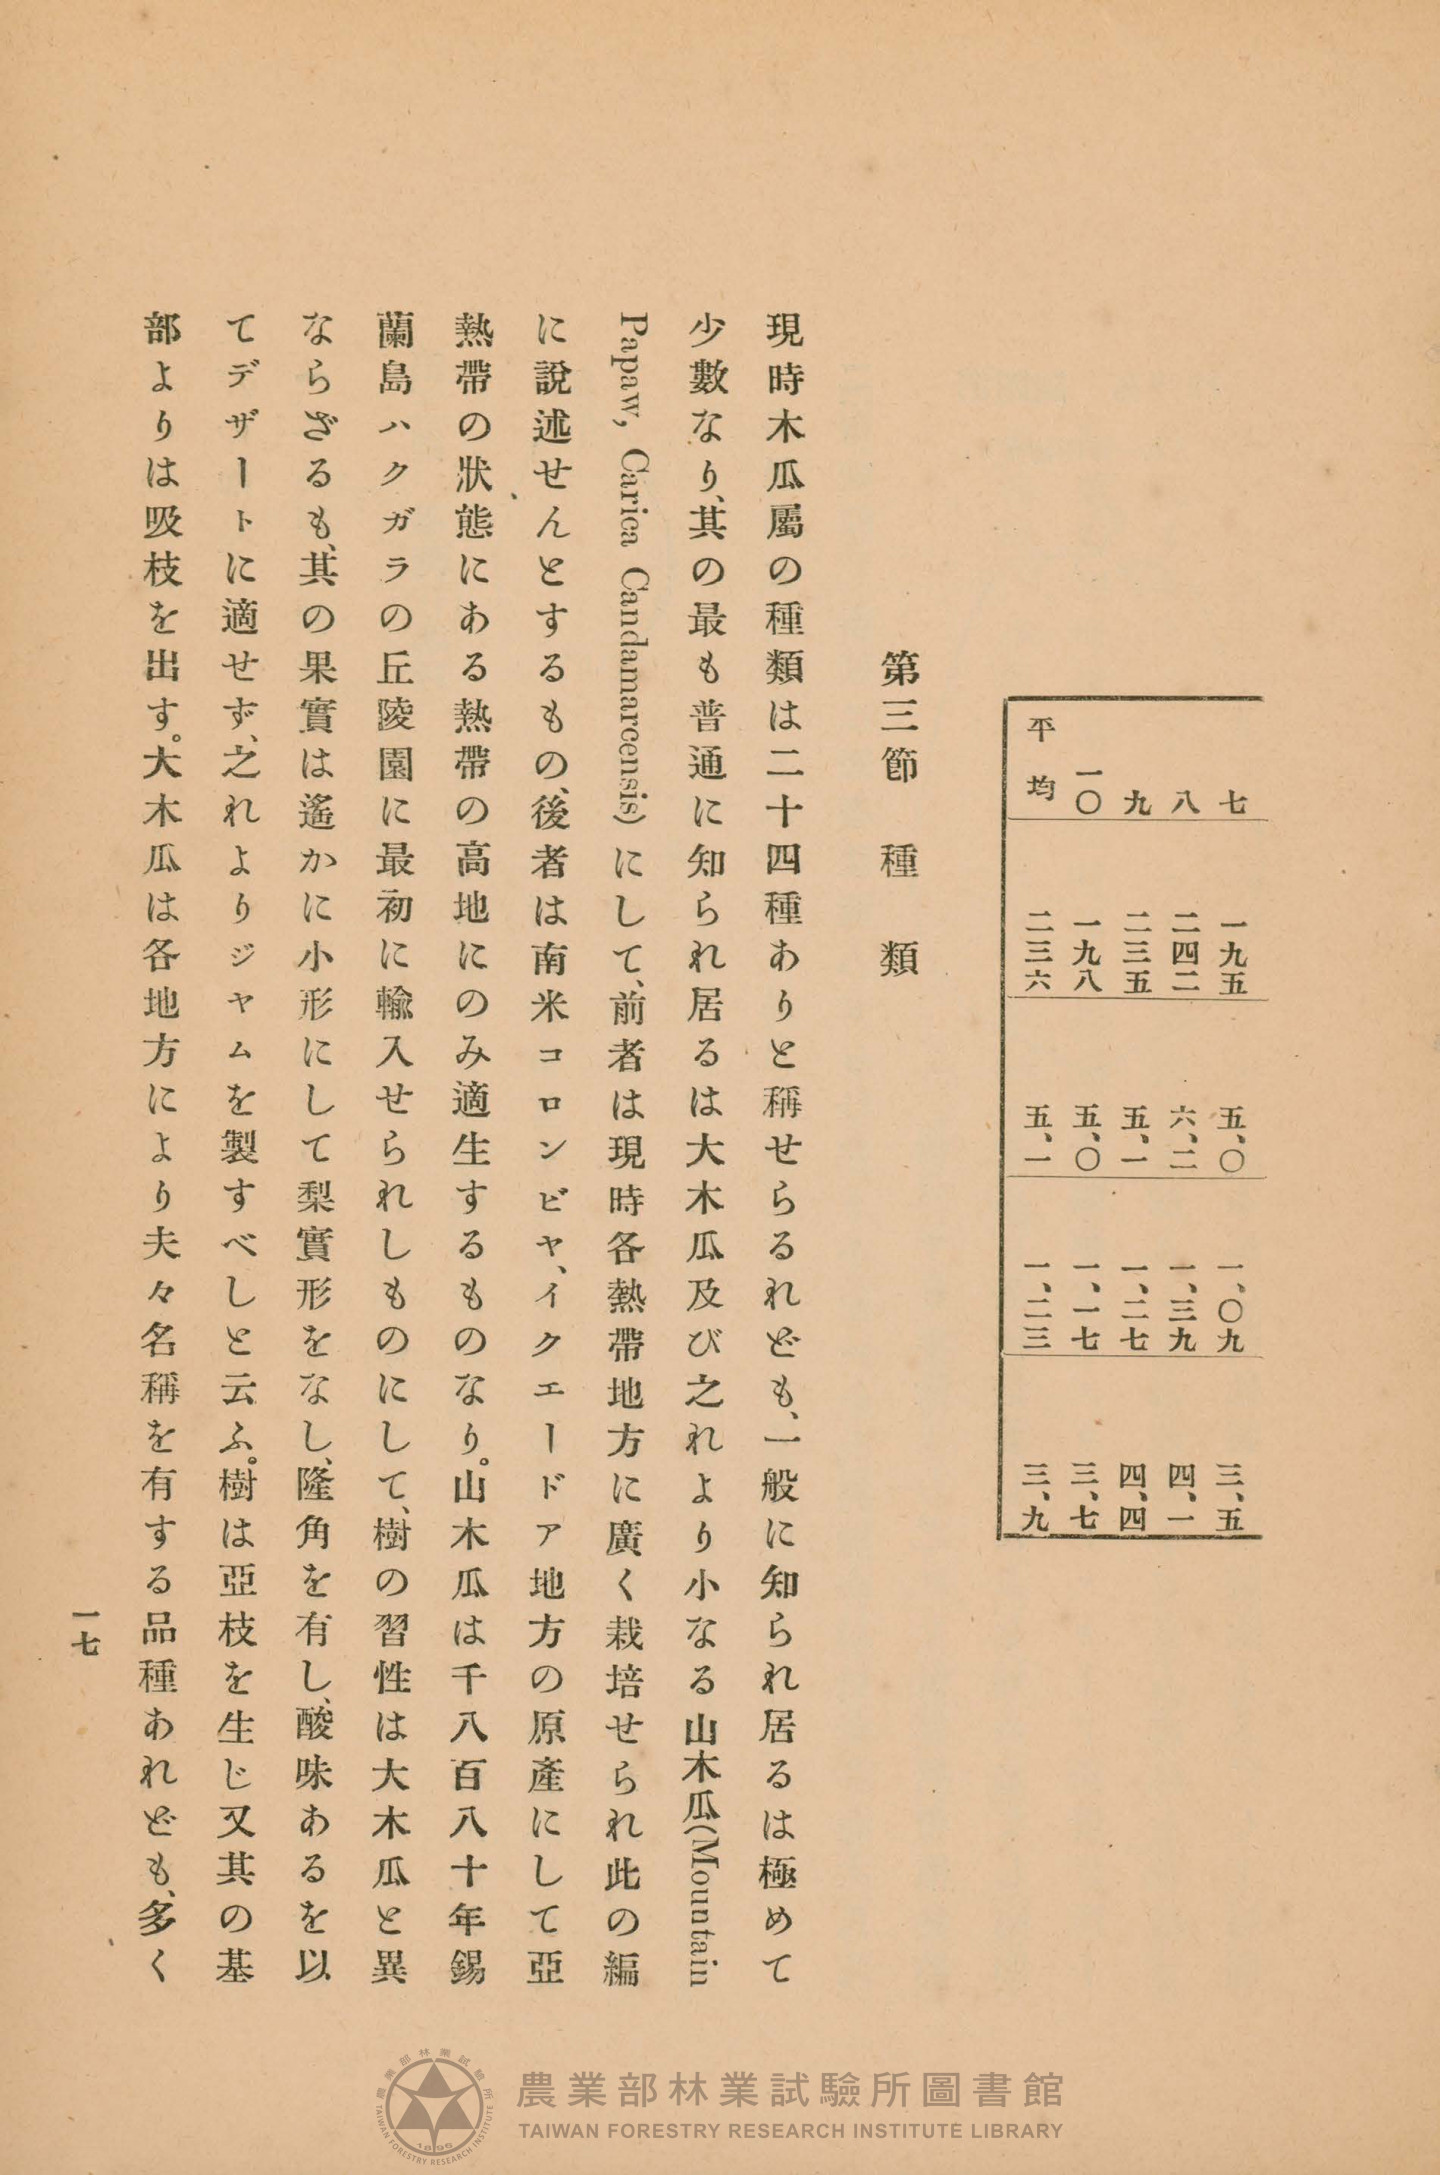 七　一九五　五、〇　一、〇九　三、五
八　二四二　六、二　一、三九　四、一
九　二三五　五、一　一、二七　四、四
一〇　一九八　五、〇　一、一七　三、七
平均　二三六　五、一　一、二三　三、九
第三節　種　類
現時木瓜屬の種類は二十四種ありと稱せらるれども、一般に知られ居るは極めて
少數なり、其の最も普通に知られ居るは大木瓜及び之れより小なる山木瓜(Mountain
Papaw, Carica Candamarcensis)にして、前者は現時各熱帶地方に廣く栽培せられ此の編
に說述せんとするもの、後者は南米コロンビヤ、イクエードア地方の原產にして亞
熱帶の狀態にある熱帶の高地にのみ適生するものなり。山木瓜は千八百八十年錫
蘭島ハクガラの丘陵園に最初に輸入せられしものにして、樹の習性は大木瓜と異
ならざるも、其の果實は遙かに小形にして梨實形をなし、隆角を有し、酸味あるを以
てデザートに適せず、之れよりジヤムを製すべしと云ふ。樹は亞枝を生じ又其の基
部よりは吸枝を出す。大木瓜は各地方により夫々名稱を有する品種あれども、多く
一七
農業部林業試驗所圖書館
TAIWAN FORESTRY RESEARCH INSTITUTE LIBRARY
農業部林業試驗所
TAIWAN FORESTRY RESEARCH INSTITUTE
1896